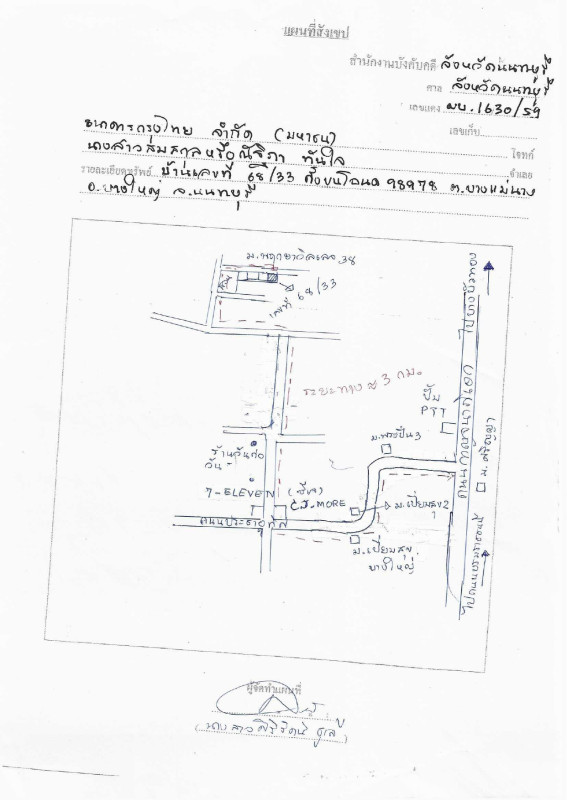 แผนที่สังเขป
สำนักงานบังคับคดี จังหวัดนนทบุรี
ศาล จังหวัดนนทบุรี
เลขแดง ผบ.1630/59
เลขเก็บ
ธนาคารกรุงไทย จำกัด (มหาชน) โจทก์
นางสาวสมสกุลหรือณัฐิกา ทันใจ จำเลย
รายละเอียดทรัพย์ บ้านเลขที่ 68/33 ตั้งบนโฉนด 98978 ต.บางแม่นาง
อ.บางใหญ่ จ.นนทบุรี
ม.พฤกษาวิลเลจ 38
เลขที่ 68/33
ไปบางบัวทอง
ระยะทาง ≈ 3 กม.
ปั๊ม
PTT
ถนนกาญจนาภิเษก
ม.พรปิ่น 3
ร้านวันต่อ
วัน
7-ELEVEN
C.J. MORE
ม.เปี่ยมสุข 2
ถนนประชาอุทิศ
ม.เปี่ยมสุข
บางใหญ่
ผู้จัดทำแผนที่